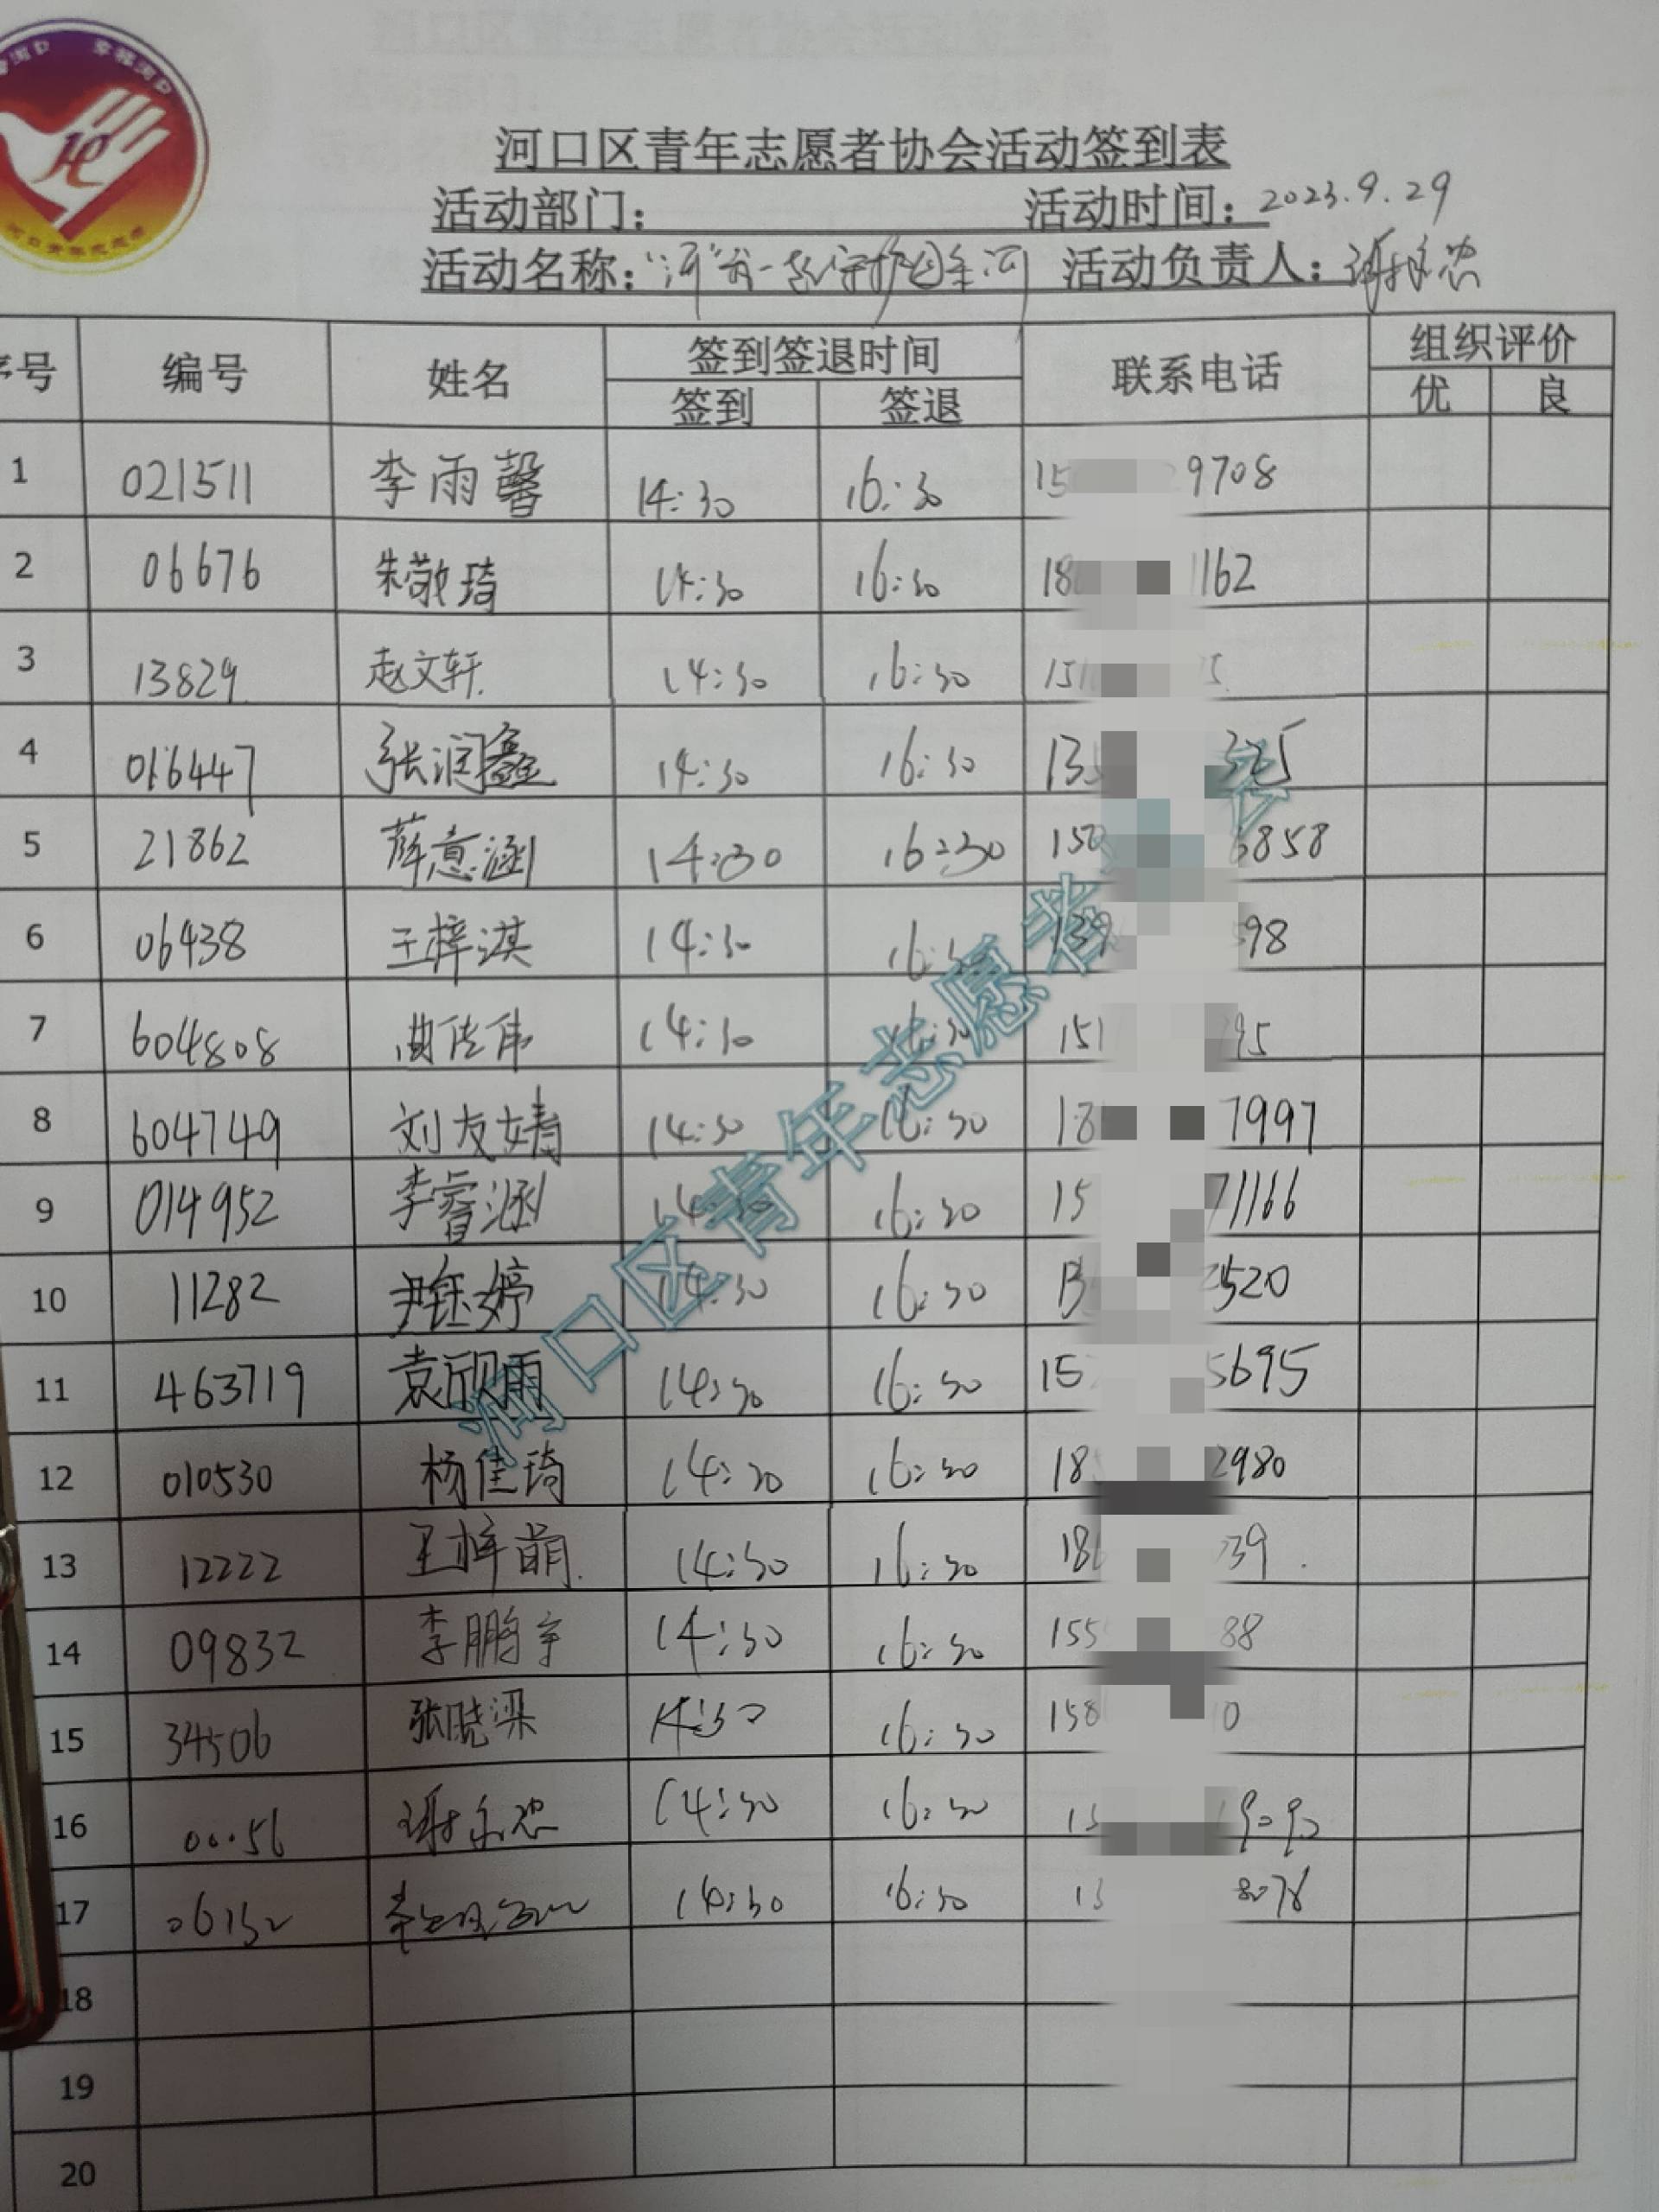 幸福河口
河口青年志愿者
河口区青年志愿者协会活动签到表
活动部门: 活动时间: 2023.9.29
活动名称: "河"我一起守护母亲河 活动负责人:
序号 编号 姓名 签到签退时间 联系电话 组织评价
签到 签退 优 良
1 021511 李雨馨 14:30 16:30 15 9708
2 06676 朱敬琦 14:30 16:30 18 1162
3 13829 赵文轩 14:30 16:30 151 5
4 016447 张润鑫 14:30 16:30 13 325
5 21862 薛意涵 14:30 16:30 150 8858
6 06438 王梓淇 14:30 16:30 139 98
7 604808 曲佳伟 14:30 16:30 151 95
8 604749 刘友婧 14:30 16:30 18 7997
9 014952 李睿涵 14:30 16:30 15 71166
10 11282 尹钰婷 14:30 16:30 13 2520
11 463719 袁欣雨 14:30 16:30 15 5695
12 010530 杨佳琦 14:30 16:30 18 2980
13 12222 王梓萌 14:30 16:30 18 39
14 09832 李鹏宇 14:30 16:30 155 88
15 34506 张晓梁 14:30 16:30 158 0
16 00056 14:30 16:30 15 9090
17 06132 14:30 16:30 13 8078
18
19
20
河口区青年志愿者协会